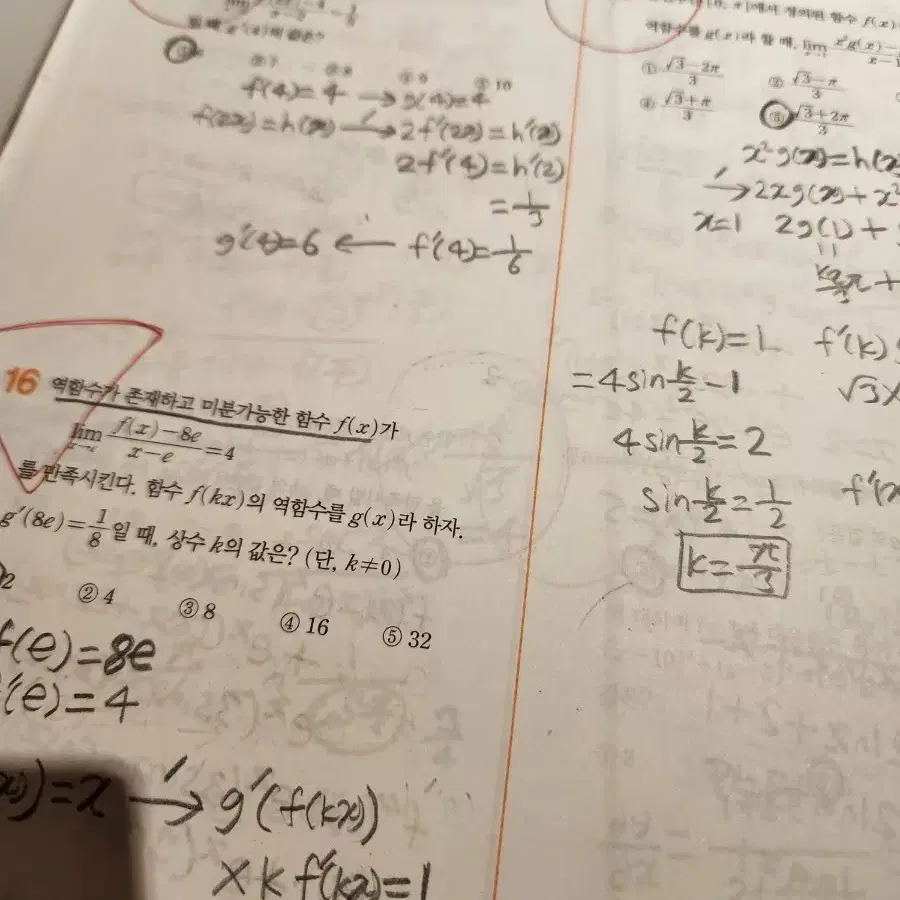 ② 7 ③ 8 ④ 9 ⑤ 10
f(4)=4 → g(4)=4
f(2x)=h(x) →′ 2f′(2x)=h′(x)
2f′(4)=h′(2)
=1/3
g′(4)=6 ← f′(4)=1/6
16 역함수가 존재하고 미분가능한 함수 f(x)가
lim f(x)-8e/x-e=4
를 만족시킨다. 함수 f(kx)의 역함수를 g(x)라 하자.
g′(8e)=1/8일 때, 상수 k의 값은? (단, k≠0)
2 ② 4 ③ 8 ④ 16 ⑤ 32
f(e)=8e
′(e)=4
)=x →′ g′(f(kx))
×k f′(kx)=1
에서 정의된 함수 f(x)
역함수를 g(x)라 할 때, lim x²g(x)-
① √3-2π/3 ② √3-π/3
④ √3+π/3 ⑤ √3+2π/3
x²g(x)=h(x
→′ 2xg(x)+x²
x=1 2g(1)+
f(k)=1 f′(k)
=4sin k/2 -1 √3×
4sin k/2=2
sin k/2=1/2 f′(x
k=π/3